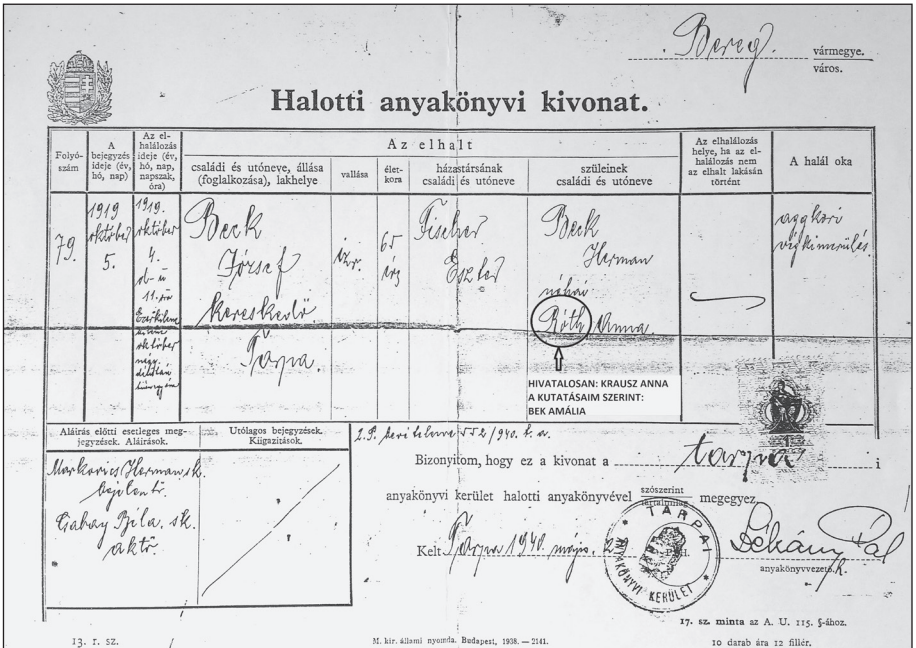 Bereg
vármegye.
város.
Halotti anyakönyvi kivonat.
Folyó-
szám
A
bejegyzés
ideje (év,
hó, nap)
Az el-
halálozás
ideje (év,
hó, nap,
napszak,
óra)
Az elhalt
családi és utóneve, állása
(foglalkozása), lakhelye
vallása
élet-
kora
házastársának
családi és utóneve
szüleinek
családi és utóneve
Az elhalálozás
helye, ha az el-
halálozás nem
az elhalt lakásán
történt
A halál oka
79.
1919
október
5.
1919.
október
4.
d. u.
11 óra
október
négy
Beck
József
kereskedő
Tarpa.
izr.
65
év
Fischer
Eszter
Beck
Herman
néhai
Róth Anna
aggkori
végkimerülés.
HIVATALOSAN: KRAUSZ ANNA
A KUTATÁSAIM SZERINT:
BEK AMÁLIA
Aláírás előtti esetleges meg-
jegyzések. Aláírások.
Utólagos bejegyzések.
Kiigazítások.
Markovics Herman sk.
bejelentő.
Gabay Béla. sk.
aktő.
552/940. k. a.
Bizonyítom, hogy ez a kivonat a tarpai i
anyakönyvi kerület halotti anyakönyvével szószerint megegyez.
tartalmilag
Kelt Tarpa 1940 május 22
P.H.
TARPAI
ANYAKÖNYVI KERÜLET
Lékány Pál
anyakönyvvezető.
17. sz. minta az A. U. 115. §-ához.
13. r. sz.
M. kir. állami nyomda. Budapest, 1938. — 2141.
10 darab ára 12 fillér.